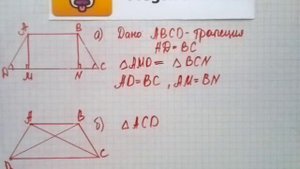 A B а) Дано ABCD - трапеция
AD = BC
△AMD = △BCN
D M N C AD = BC , AM = BN
A B б) △ACD
D C